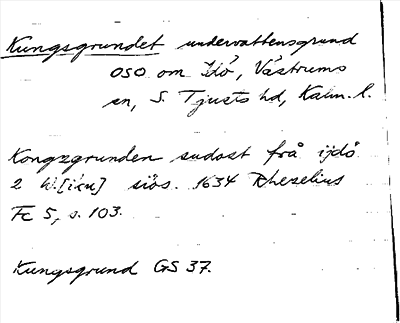 Kungsgrundet undervattensgrund
OSO om Idö, Västrums
sn, S. Tjusts hd, Kalm. l.
Kongzgrunden sudost frå ijdö
2 W.[iku] siös. 1634 Rheselius
Fc 5, s. 103.
Kungsgrund GS 37.